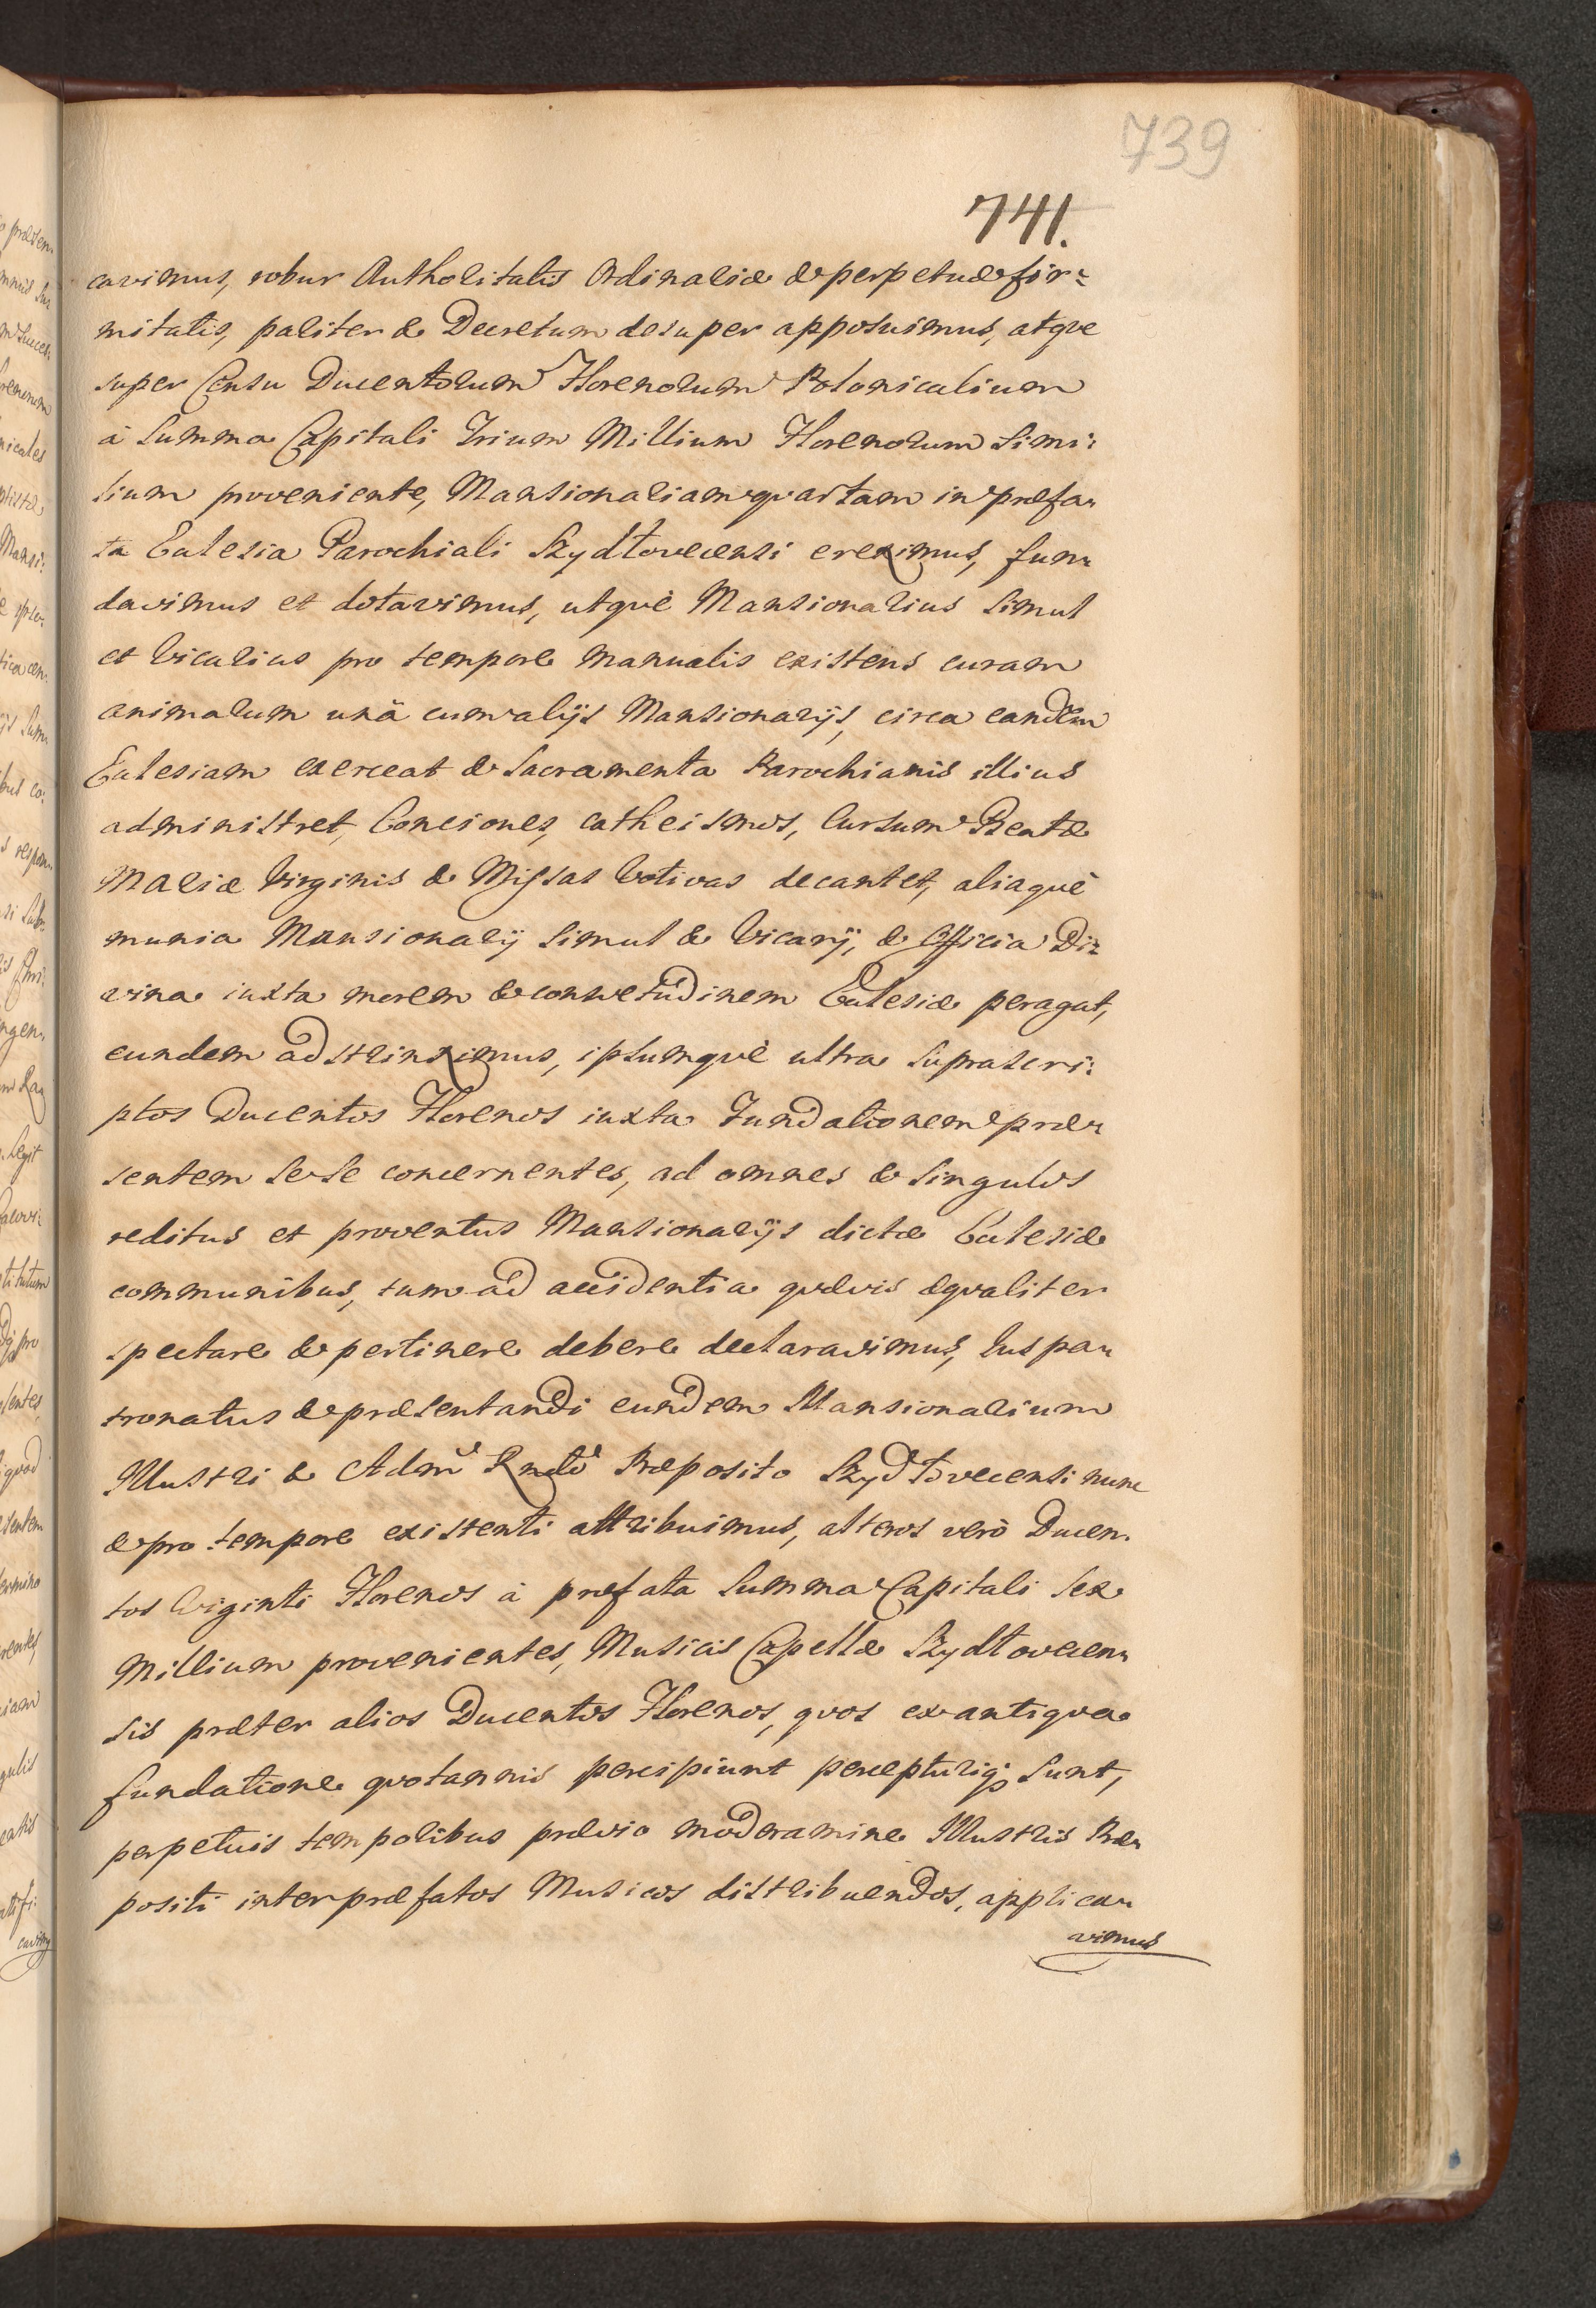 739
741.
cavimus, robur Authoritatis Ordinariæ & perpetuæ fir-
mitatis, pariter & Decretum desuper apposuimus, atqve
super Censu Ducentorum Florenorum Polonicalium
à Summa Capitali Trium Millium Florenorum Simi-
lium proveniente, Mansionariam qvartam in præfa-
ta Ecclesia Parochiali Szydłoveciensi ereximus, fun-
davimus et dotavimus, utqvè Mansionarius Simul
et Vicarius pro tempore manualis existens curam
animarum unà cum alijs Mansionarijs, circa eandem
Ecclesiam exerceat & Sacramenta Parochianis illius
administret, Conciones, cathecismos, Cursum Beatæ
Mariæ Virginis & Missas Votivas decantet, aliaqvè
munia Mansionarij Simul & Vicarij, & Officia Di-
vina iuxta morem & consvetudinem Ecclesiæ peragat,
eundem adstrinximus, ipsumqvè ultra Suprascri-
ptos Ducentos Florenos iuxta Fundationem præ-
sentem Se Se concernentes, ad omnes & Singulos
reditus et proventus Mansionarijs dictæ Ecclesiæ
communibus, tum ad accidentia qvævis æqvaliter
spectare & pertinere debere declaravimus, Jus pa-
tronatus & præsentandi eundem Mansionarium
Illustri & Admd Rndo Præposito Szydłoveciensi nunc
& pro tempore existenti attribuimus, alteros verò Ducen-
tos Viginti Florenos à præfata Summa Capitali Sex
Millium provenientes, Musicis Capellæ Szydłovecien-
sis præter alios Ducentos Florenos, qvos ex antiqva
fundatione qvotannis percipiunt percepturiq; Sunt,
perpetuis temporibus prævio moderamine Illustris Præ-
positi inter præfatos Musicos distribuendos, applica-
vimus